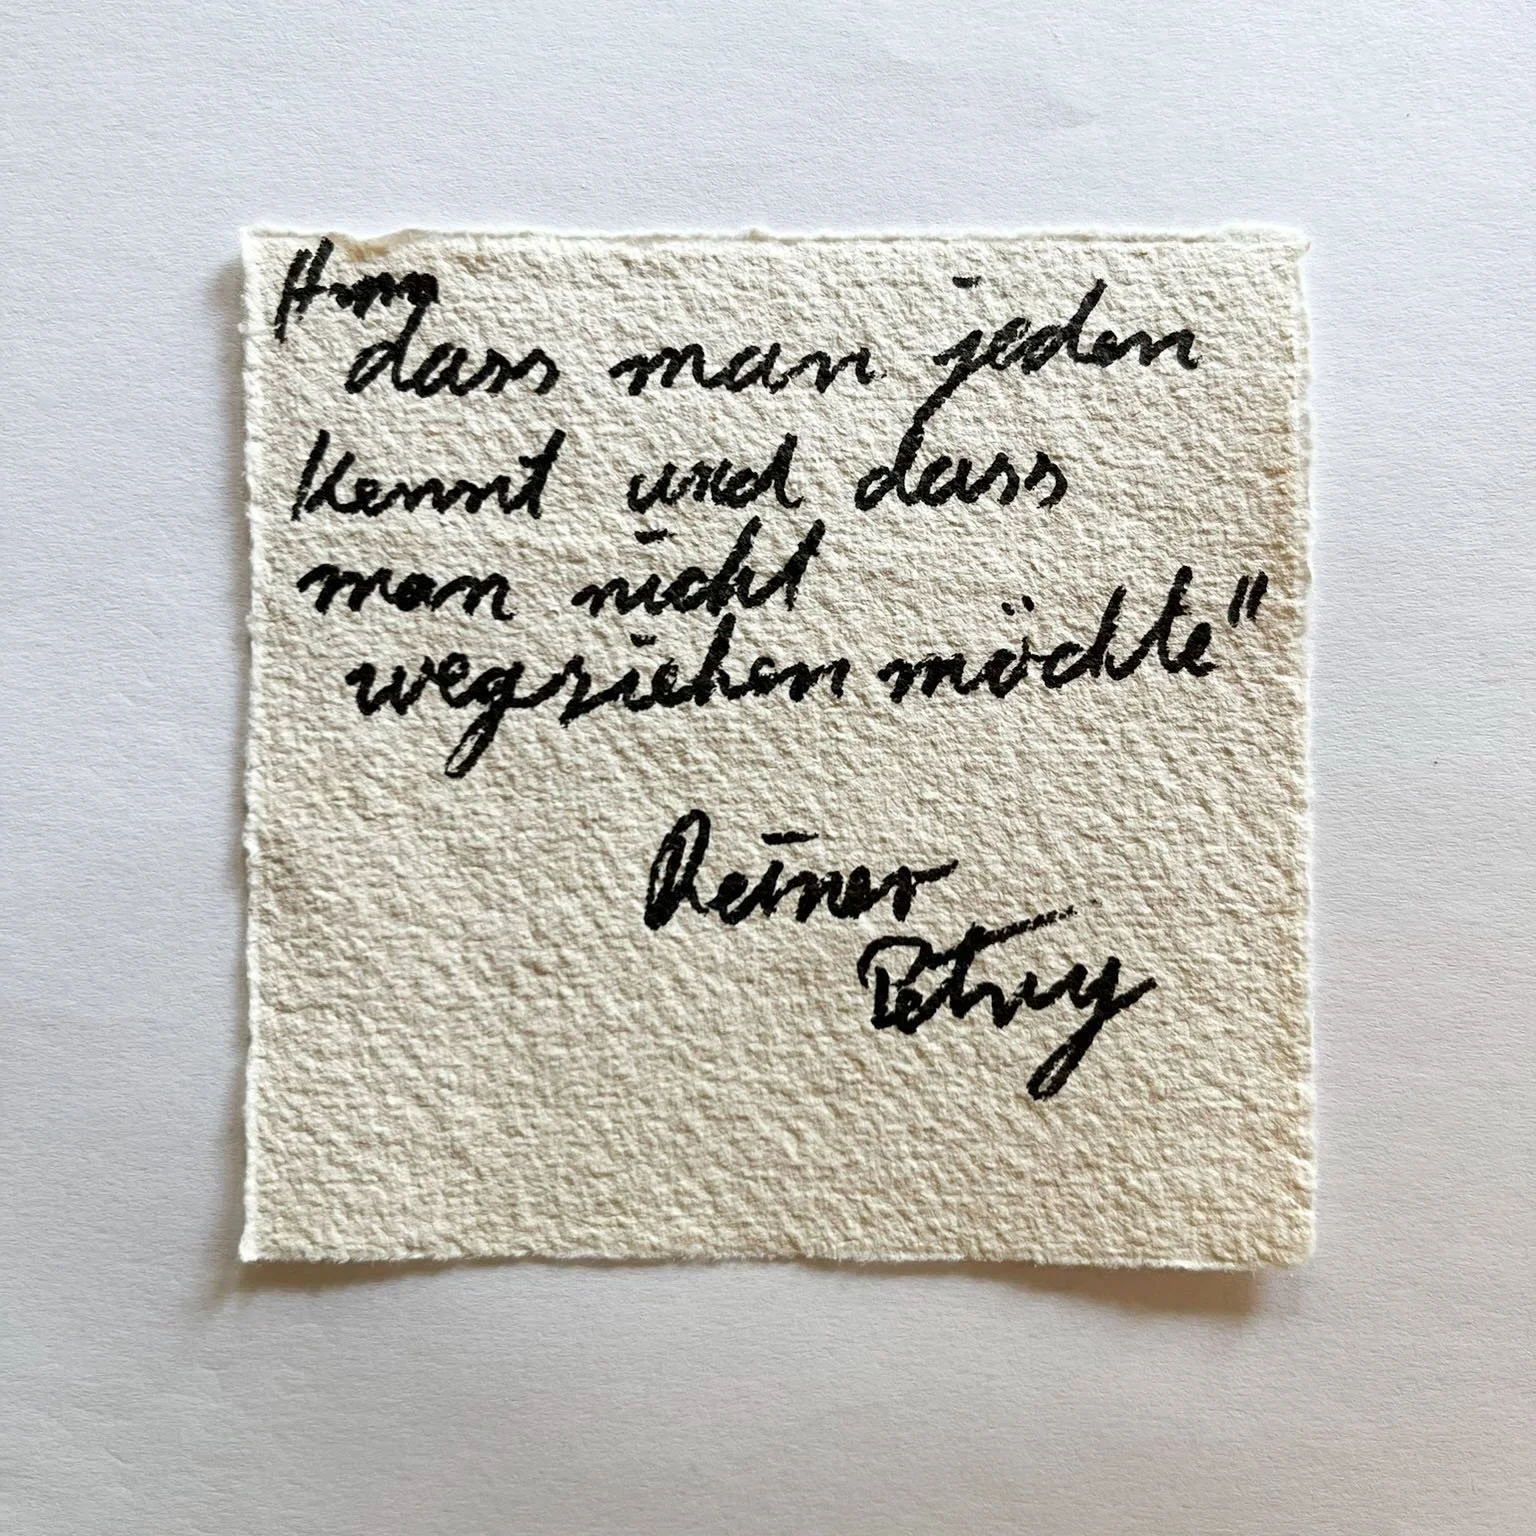 "Hmm
dass man jeden
kennt und dass
man nicht
wegziehen möchte"
Reiner
Petry